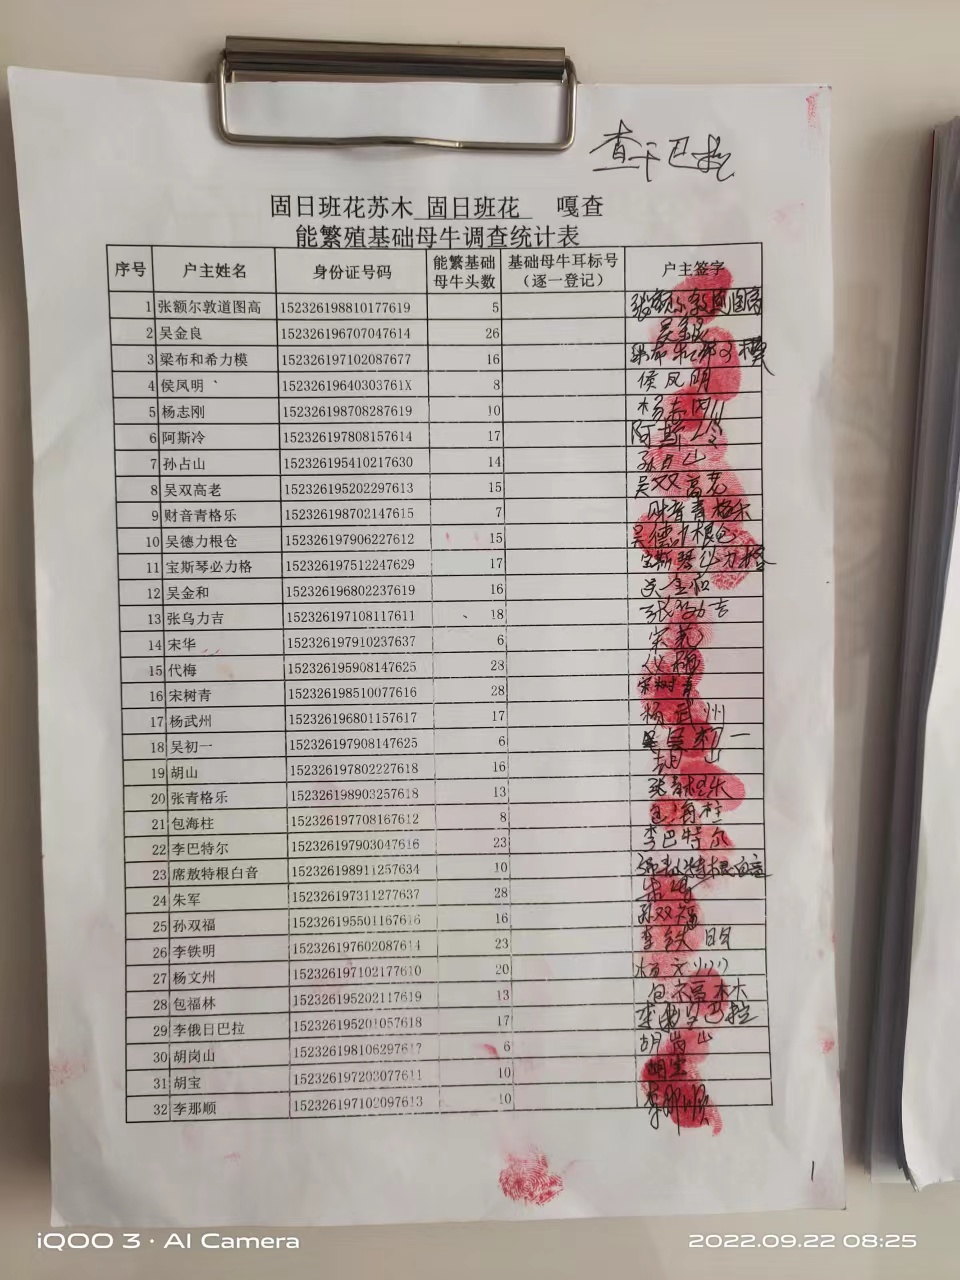 查干巴拉
固日班花苏木 固日班花 嘎查
能繁殖基础母牛调查统计表
序号 户主姓名 身份证号码 能繁基础母牛头数 基础母牛耳标号（逐一登记） 户主签字
1 张额尔敦道图高 152326198810177619 5 张额尔敦道图高
2 吴金良 152326196707047614 26 吴金良
3 梁布和希力模 152326197102087677 16
4 侯凤明 15232619640303761X 8 侯凤明
5 杨志刚 152326198708287619 10 杨志刚
6 阿斯冷 152326197808157614 17 阿斯冷
7 孙占山 152326195410217630 14 孙占山
8 吴双高老 152326195202297613 15 吴双高老
9 财音青格乐 152326198702147615 7 财音青格乐
10 吴德力根仓 152326197906227612 15 吴德力根仓
11 宝斯琴必力格 152326197512247629 17 宝斯琴必力格
12 吴金和 152326196802237619 16 吴金和
13 张乌力吉 152326197108117611 18 张乌力吉
14 宋华 152326197910237637 6 宋花
15 代梅 152326195908147625 28
16 宋树青 152326198510077616 28 宋树青
17 杨武州 152326196801157617 17 杨武州
18 吴初一 152326197908147625 6 吴初一
19 胡山 152326197802227618 16 胡山
20 张青格乐 152326198903257618 13 张青格乐
21 包海柱 152326197708167612 8 包海柱
22 李巴特尔 152326197903047616 23 李巴特尔
23 席敖特根白音 152326198911257634 10
24 朱军 152326197311277637 28 朱军
25 孙双福 152326195501167616 16 孙双福
26 李铁明 152326197602087614 23 李铁明
27 杨文州 152326197102177610 20 杨文州
28 包福林 152326195202117619 13 包福林
29 李俄日巴拉 152326195201057618 17
30 胡岗山 152326198106297617 6 胡岗山
31 胡宝 152326197203077611 10 胡宝
32 李那顺 152326197102097613 10 李那顺
1
iQOO 3 · AI Camera
2022.09.22 08:25